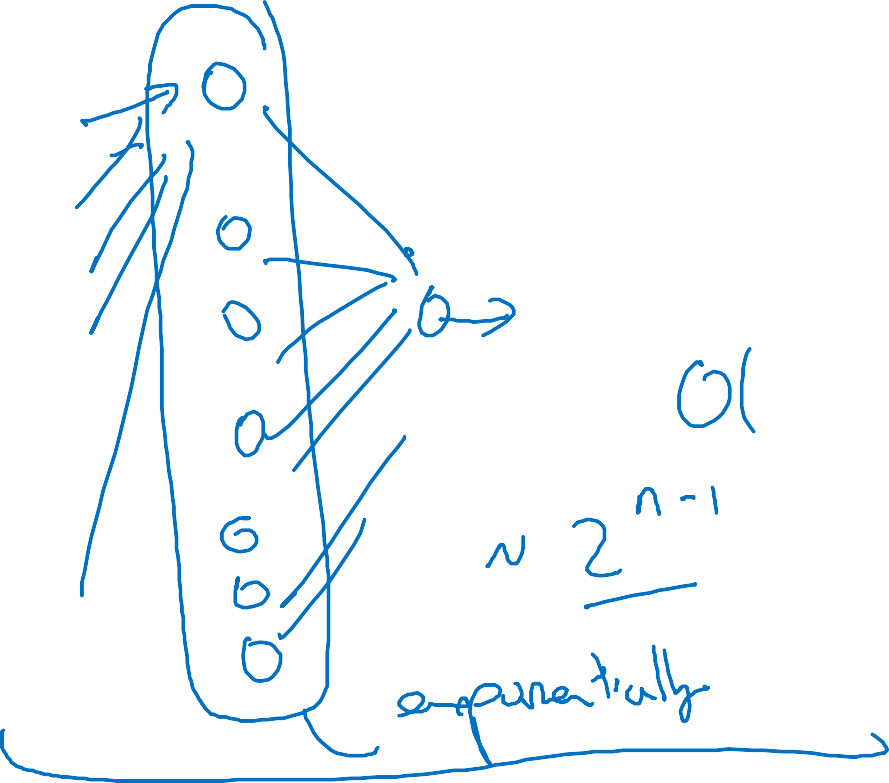 O(
~ 2^{n-1}
exponentially